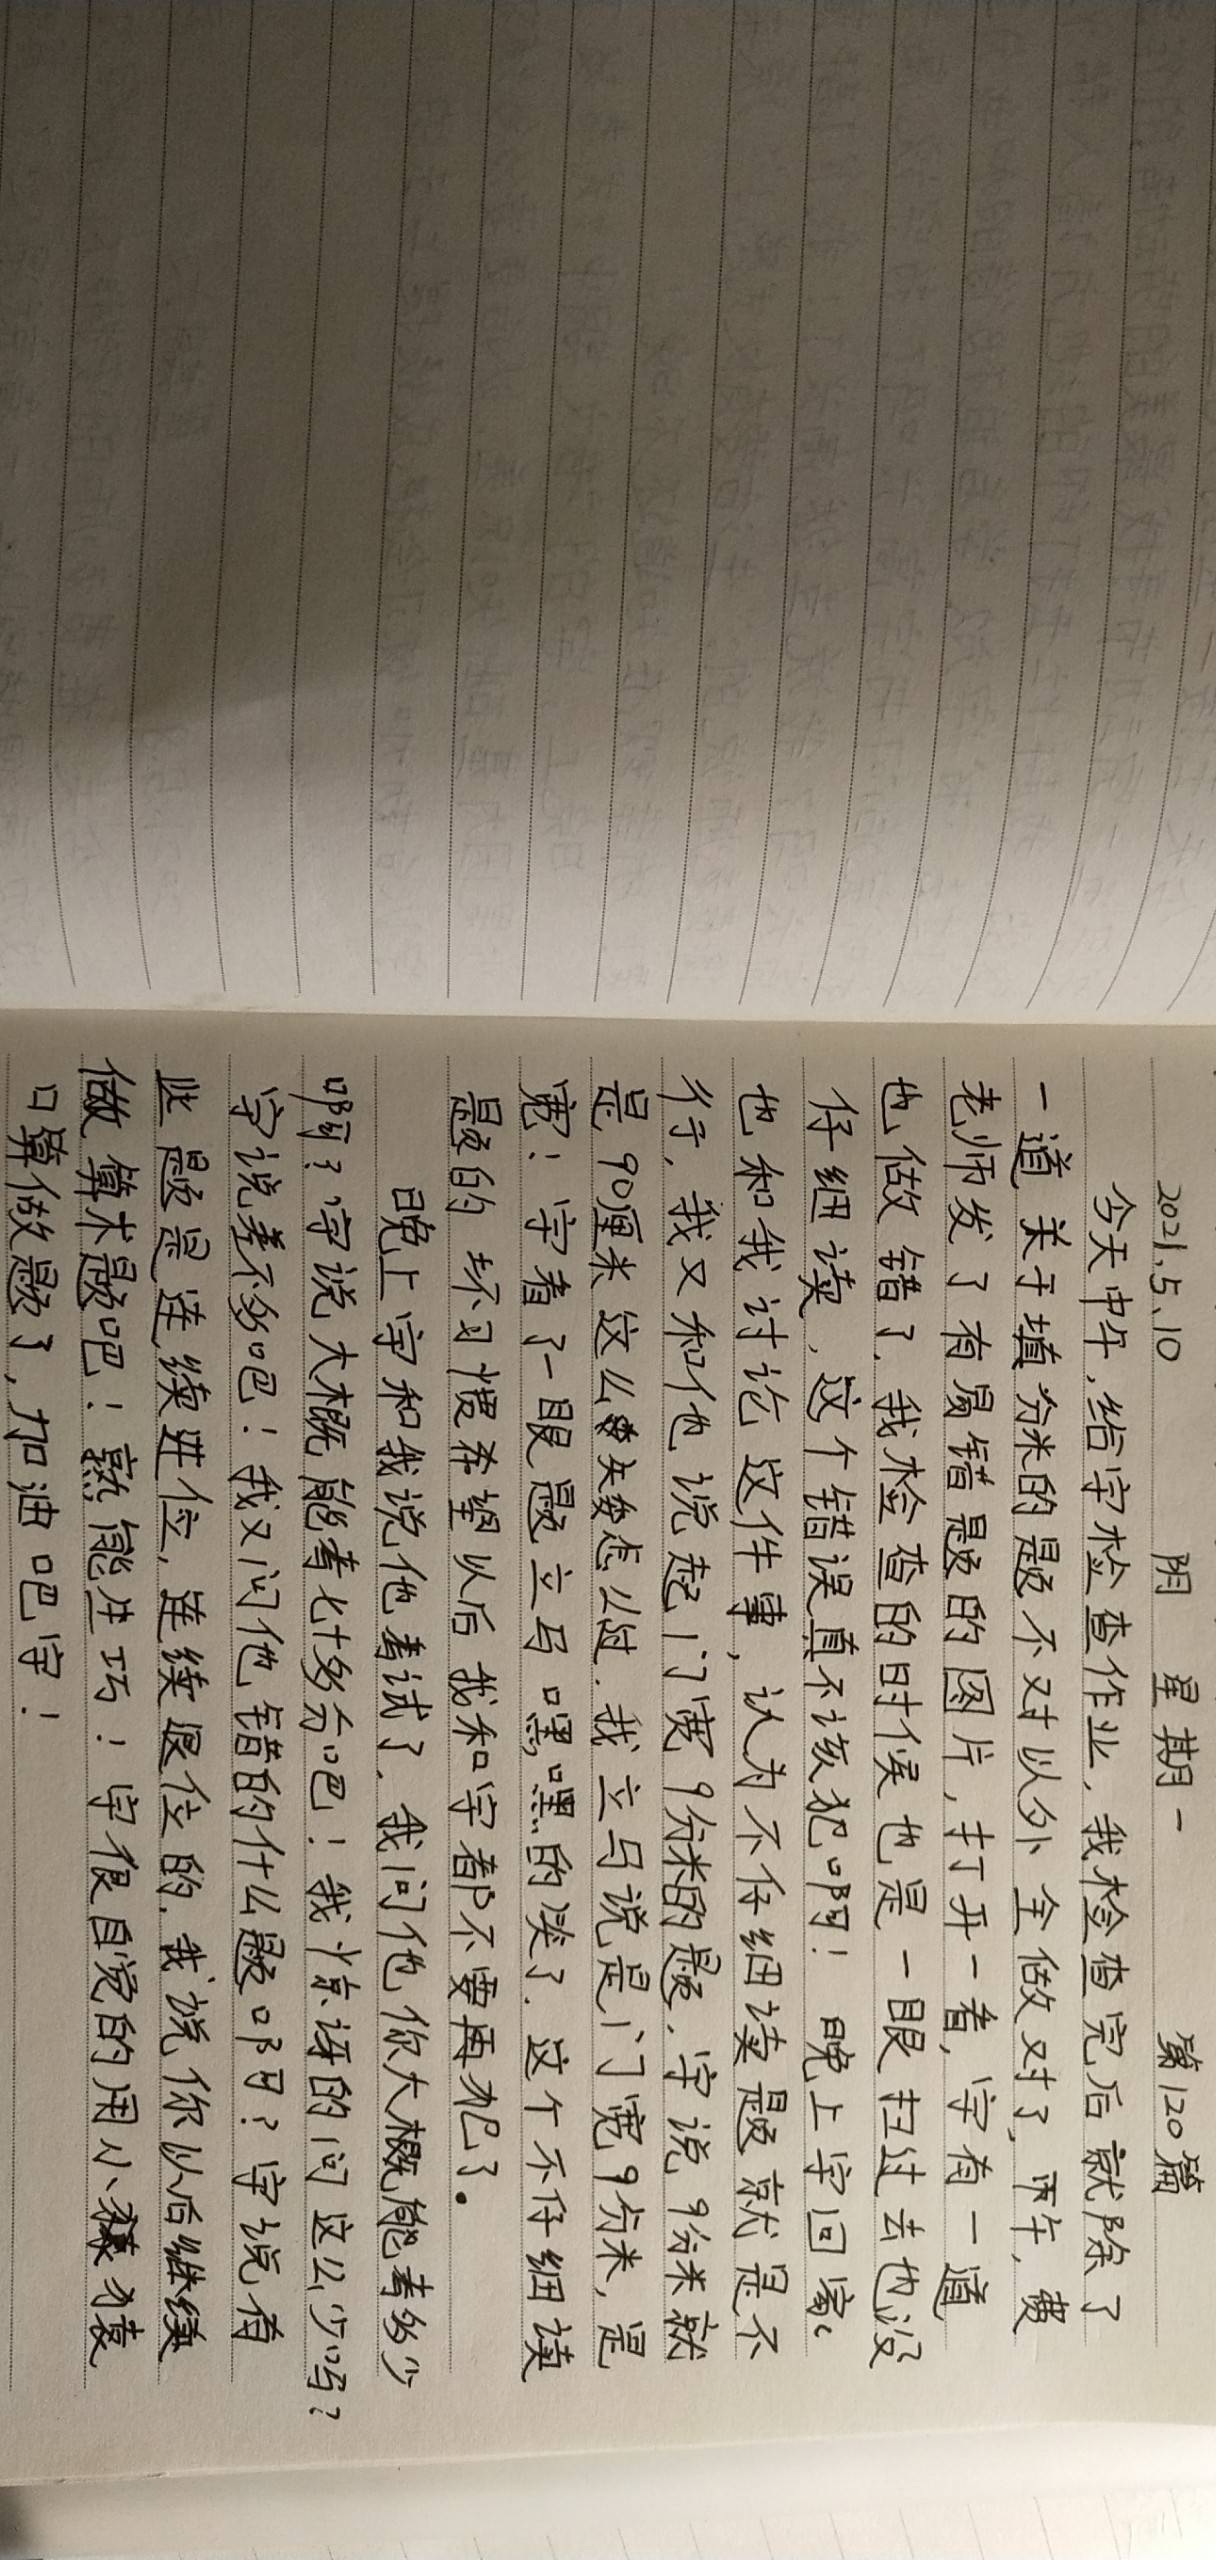 2021.5.10 阴 星期一 第120篇
今天中午,给宇检查作业,我检查完后就除了
一道关于填分米的题不对以外全做对了,下午,费
老师发了有易错题的图片,打开一看,宇有一道
也做错了.我检查的时候也是一眼扫过去也没
仔细读,这个错误真不该犯啊!晚上宇回家
也和我讨论这件事,认为不仔细读题就是不
行,我又和他说起门宽9分米的题.宇说9分米就
是90厘米这么矮怎么过.我立马说是门宽9分米,是
宽!宇看了一眼题立马嘿嘿的笑了.这个不仔细读
题的坏习惯希望以后我和宇都不要再犯了.
晚上宇和我说他考试了.我问他你大概能考多少
啊?宇说大概能考七十多分吧!我惊讶的问这么少吗?
宇说差不多吧!我又问他错的什么题啊?宇说有
些题是连续进位,连续退位的.我说你以后继续
做算术题吧!熟能生巧!宇很自觉的用小猿
口算做题了,加油吧宇!